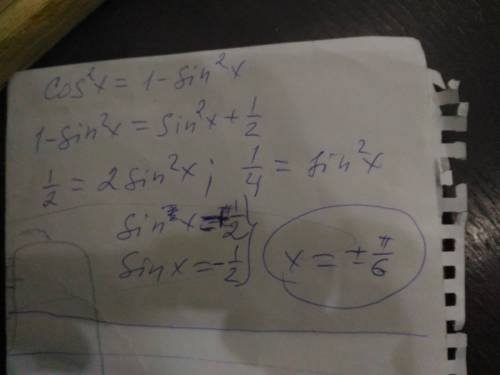 cos²x = 1 - sin²x
1 - sin²x = sin²x + 1/2
1/2 = 2 sin²x ; 1/4 = sin²x
sin x = +1/2
sin x = -1/2 } x = ± π/6